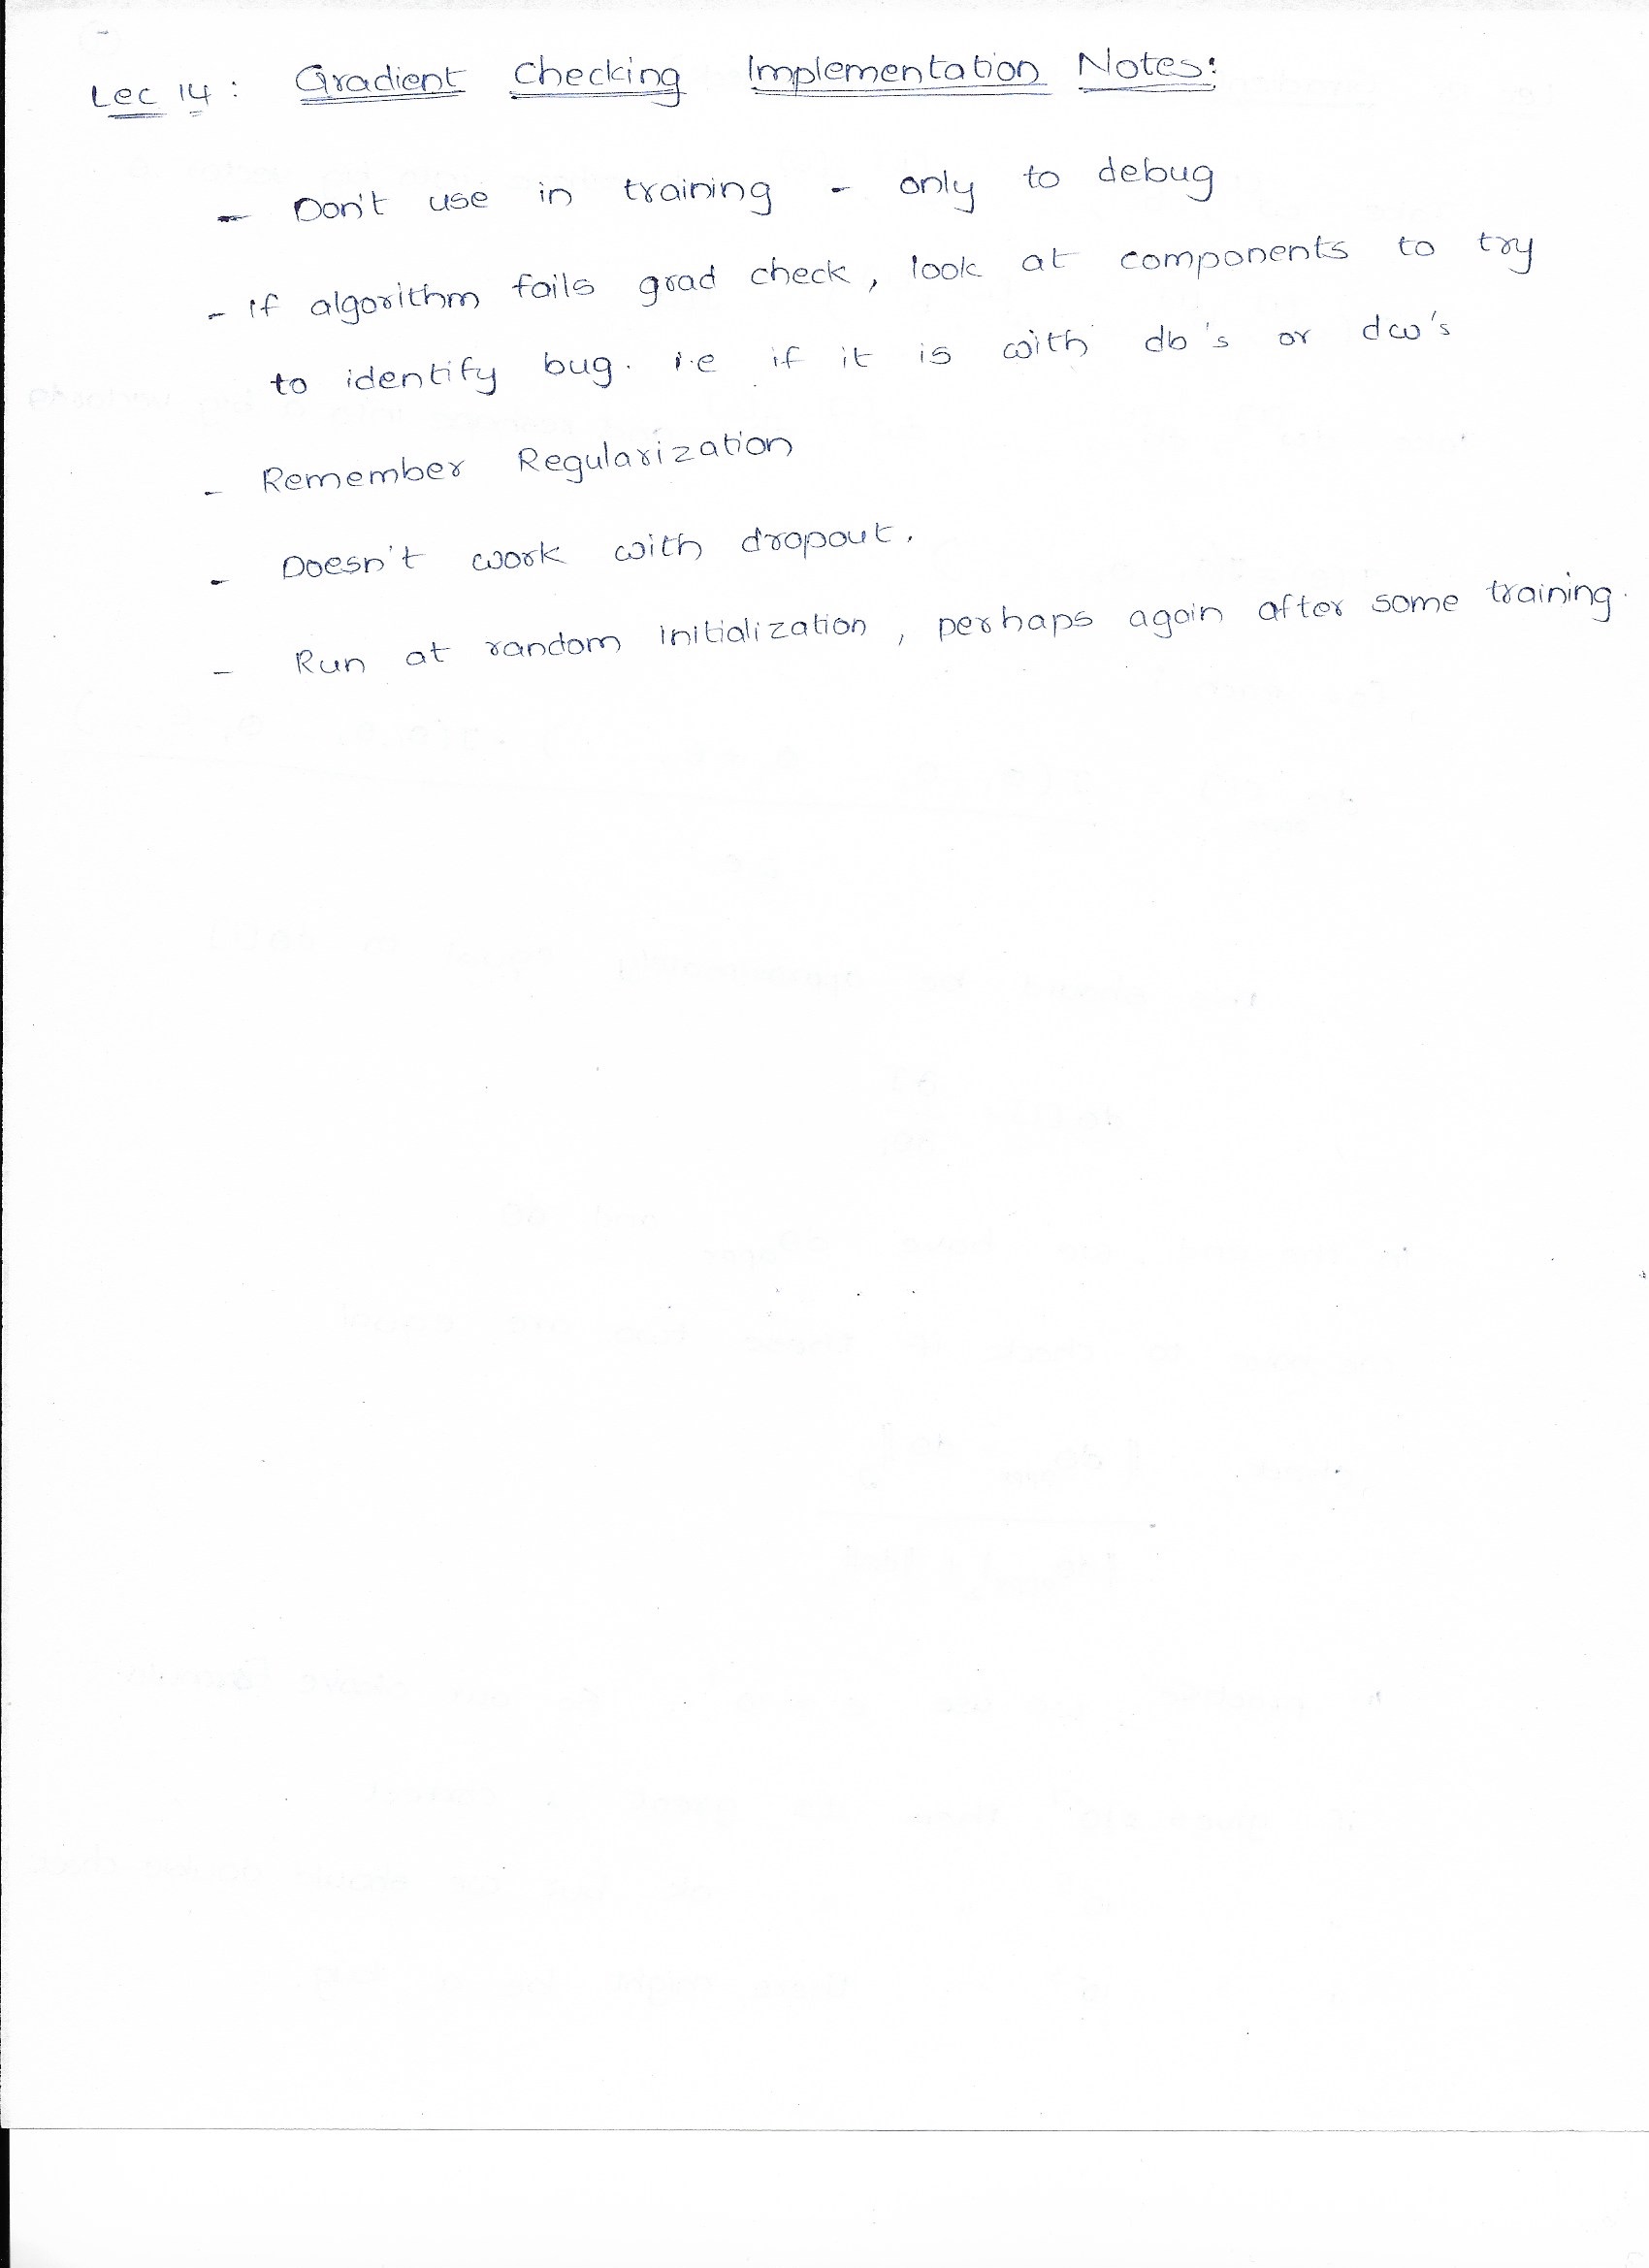 Lec 14 : Gradient Checking Implementation Notes:
- Don't use in training - only to debug
- If algorithm fails grad check, look at components to try
to identify bug. i.e if it is with db's or dw's
- Remember Regularization
- Doesn't work with dropout.
- Run at random initialization, perhaps again after some training.